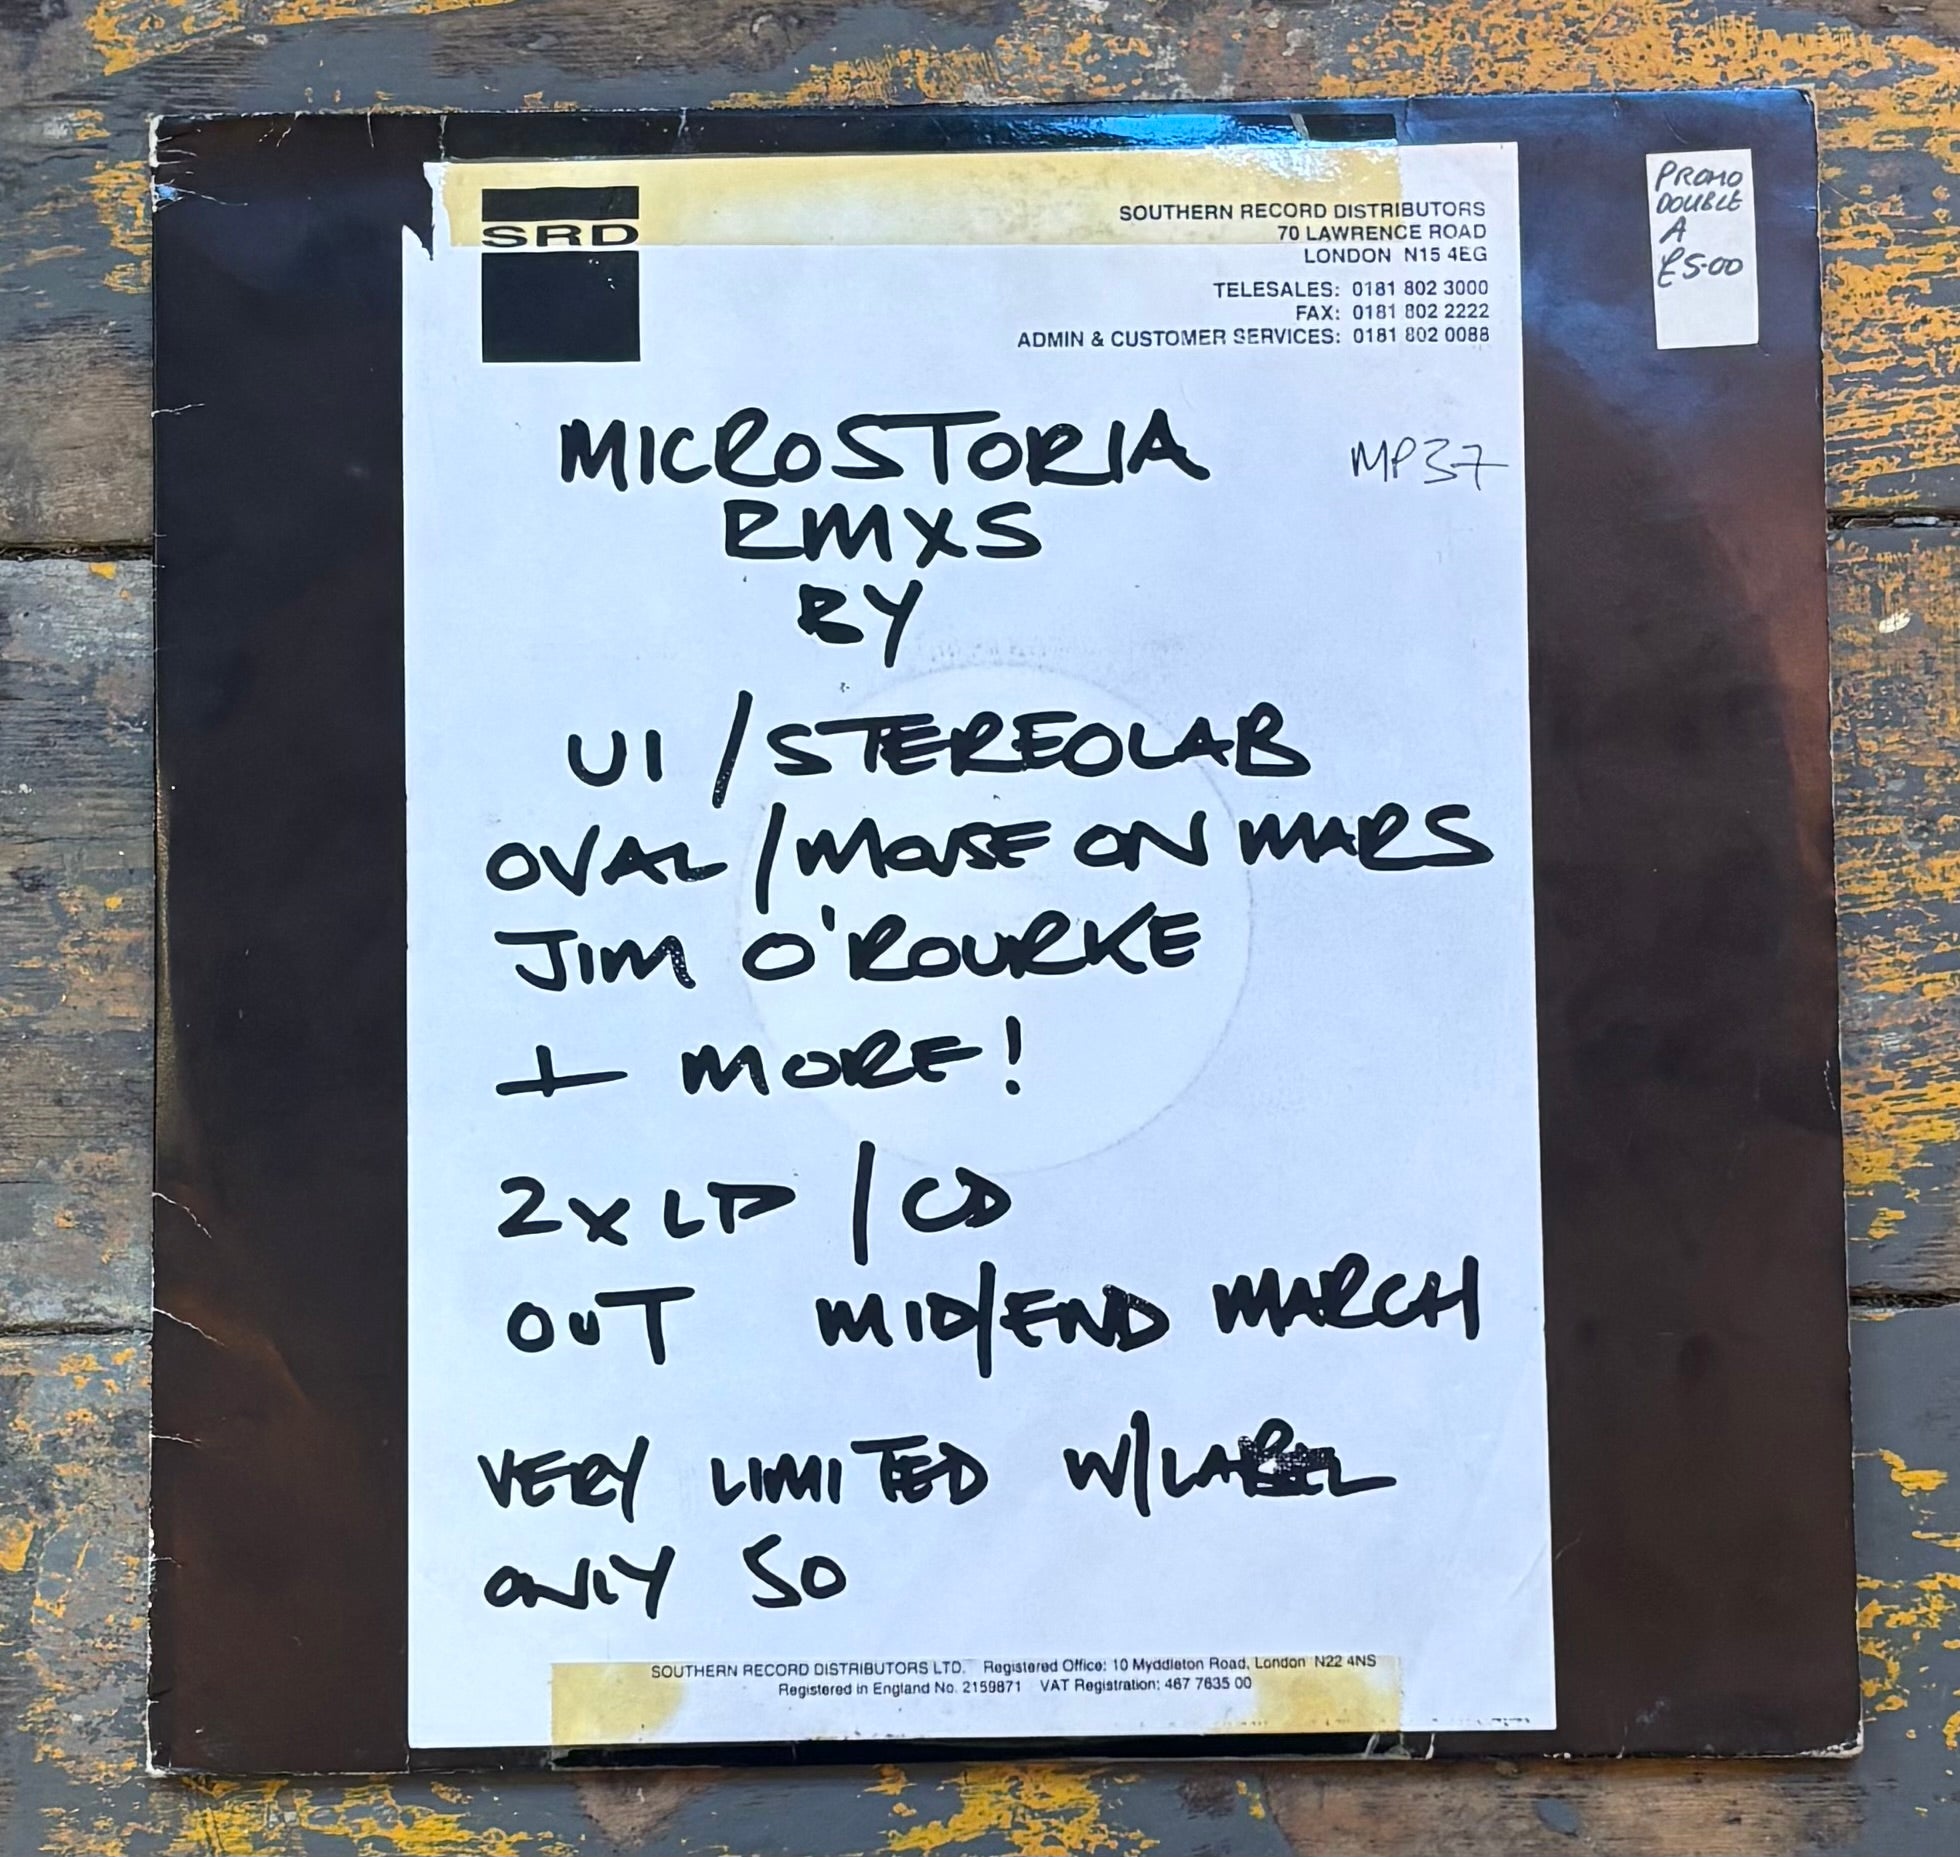 SRD
SOUTHERN RECORD DISTRIBUTORS
70 LAWRENCE ROAD
LONDON N15 4EG
TELESALES: 0181 802 3000
FAX: 0181 802 2222
ADMIN & CUSTOMER SERVICES: 0181 802 0088
PROMO
DOUBLE
A
£5.00
MICROSTORIA
MP37
RMXS
BY
UI / STEREOLAB
OVAL / MOUSE ON MARS
JIM O'ROURKE
+ MORE!
2 x LP / CD
OUT MID/END MARCH
VERY LIMITED W/LABEL
ONLY 50
SOUTHERN RECORD DISTRIBUTORS LTD. Registered Office: 10 Myddleton Road, London N22 4NS
Registered in England No. 2159871 VAT Registration: 467 7635 00